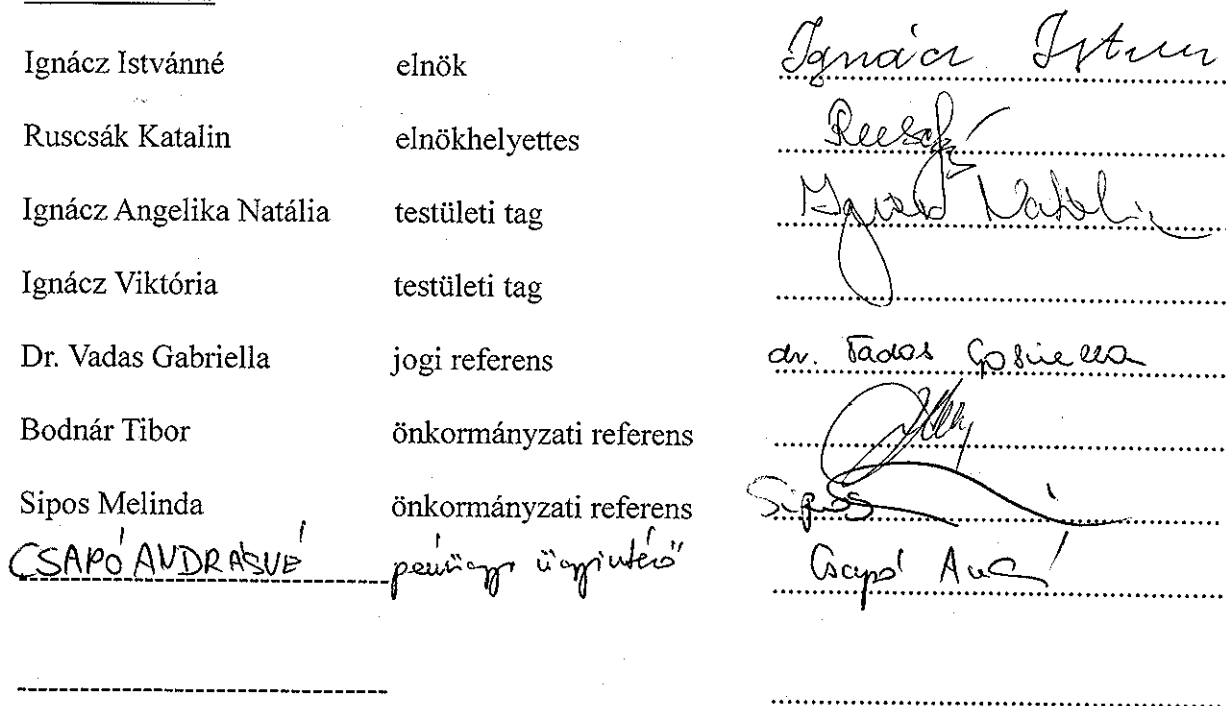 Ignácz Istvánné elnök Ignácz Istvánn
Ruscsák Katalin elnökhelyettes
Ignácz Angelika Natália testületi tag Ignácz Natália
Ignácz Viktória testületi tag
Dr. Vadas Gabriella jogi referens dr. Vadas Gabriella
Bodnár Tibor önkormányzati referens
Sipos Melinda önkormányzati referens Sipos
CSAPÓ ANDRÁSNÉ pénzügyi ügyintéző Csapó